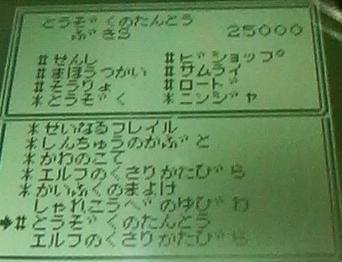 とうぞくのたんとう
ぶきS 25000
#せんし #ビショップ
#まほうつかい #サムライ
#そうりょ #ロード
*とうぞく *ニンジャ
*せいなるフレイル
*しんちゅうのかぶと
*かわのこて
*エルフのくさりかたびら
*かいふくのまよけ
しゃれこうべのゆびわ
➔#とうぞくのたんとう
エルフのくさりかたびら